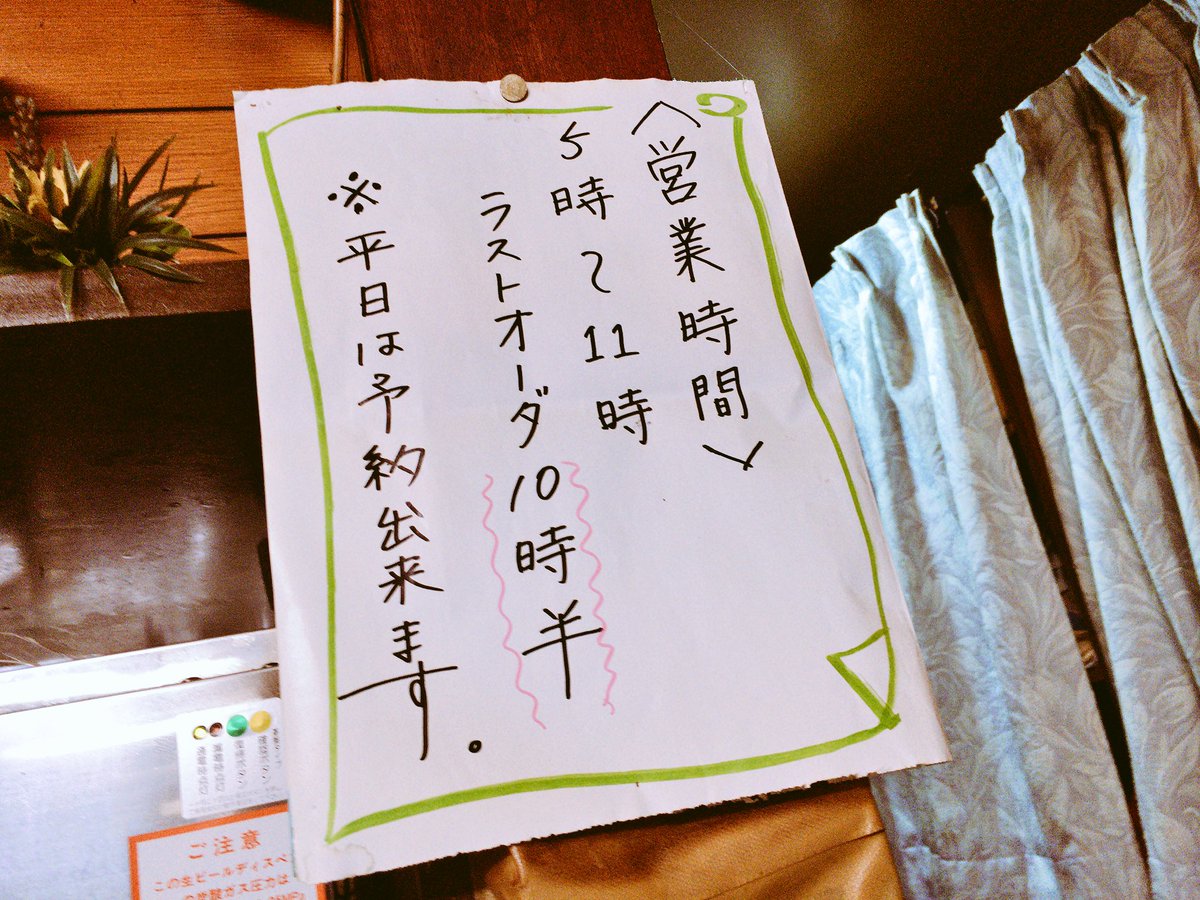 〈営業時間〉
5時〜11時
ラストオーダ10時半
※平日は予約出来ます。
ご注意
この生ビールディスペ